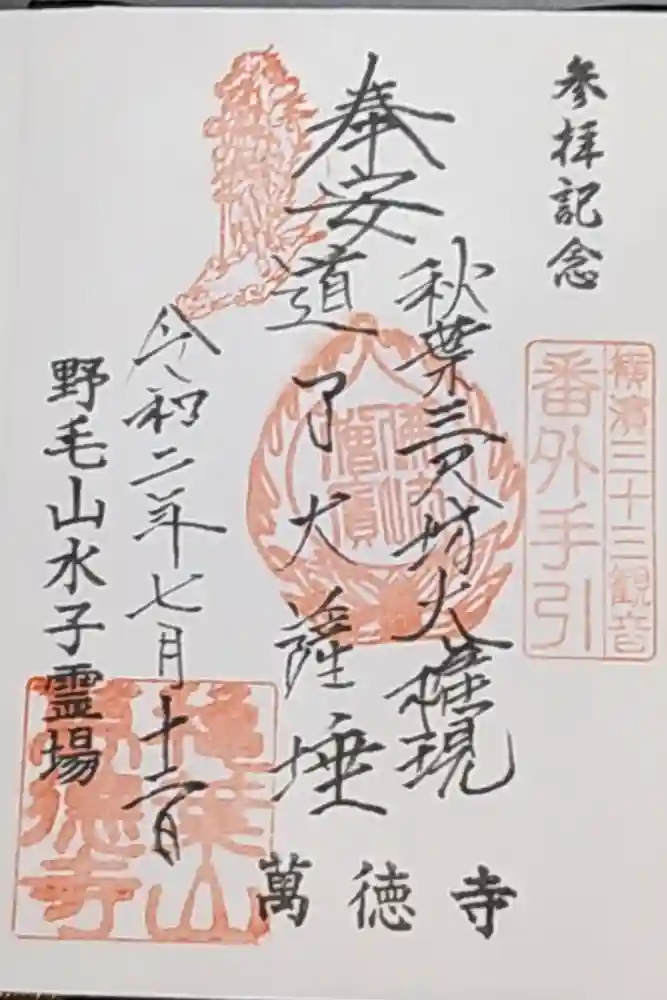 参拝記念
横濱三十三観音
番外手引
奉安
秋葉三尺坊大権現
道了大薩埵
令和二年七月十二日
野毛山水子霊場
萬徳寺
萬徳寺